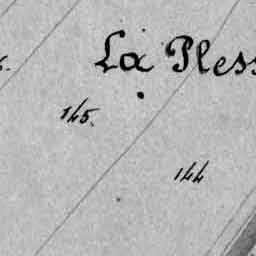 La Pless
145.
144